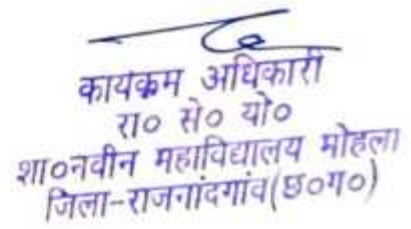 कार्यकम अधिकारी
रा० से० यो०
शा०नवीन महाविद्यालय मोहला
जिला-राजनांदगांव(छ०ग०)